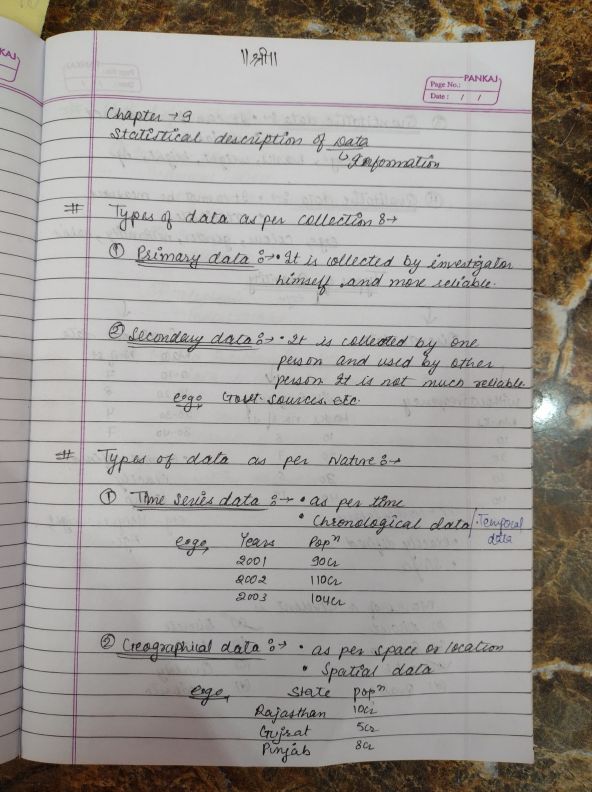 ॥श्री॥
PANKAJ
Page No.:
Date: / /
Chapter → 9
Statistical description of Data
↳ Information
# Types of data as per collection :→
① Primary data :→ • It is collected by investigator
himself, and more reliable.
② Secondary data :→ • It is collected by one
person and used by other
person It is not much reliable
e.g. Govt. sources, etc.
# Types of data as per Nature :→
① Time Series data :→ • as per time
• Chronological data / • Temporal
data
e.g. Years Popⁿ
2001 90cr
2002 110cr
2003 104cr
② Geographical data :→ • as per space or location
• Spatial data
e.g. State popⁿ
Rajasthan 10cr
Gujrat 5cr
Punjab 8cr